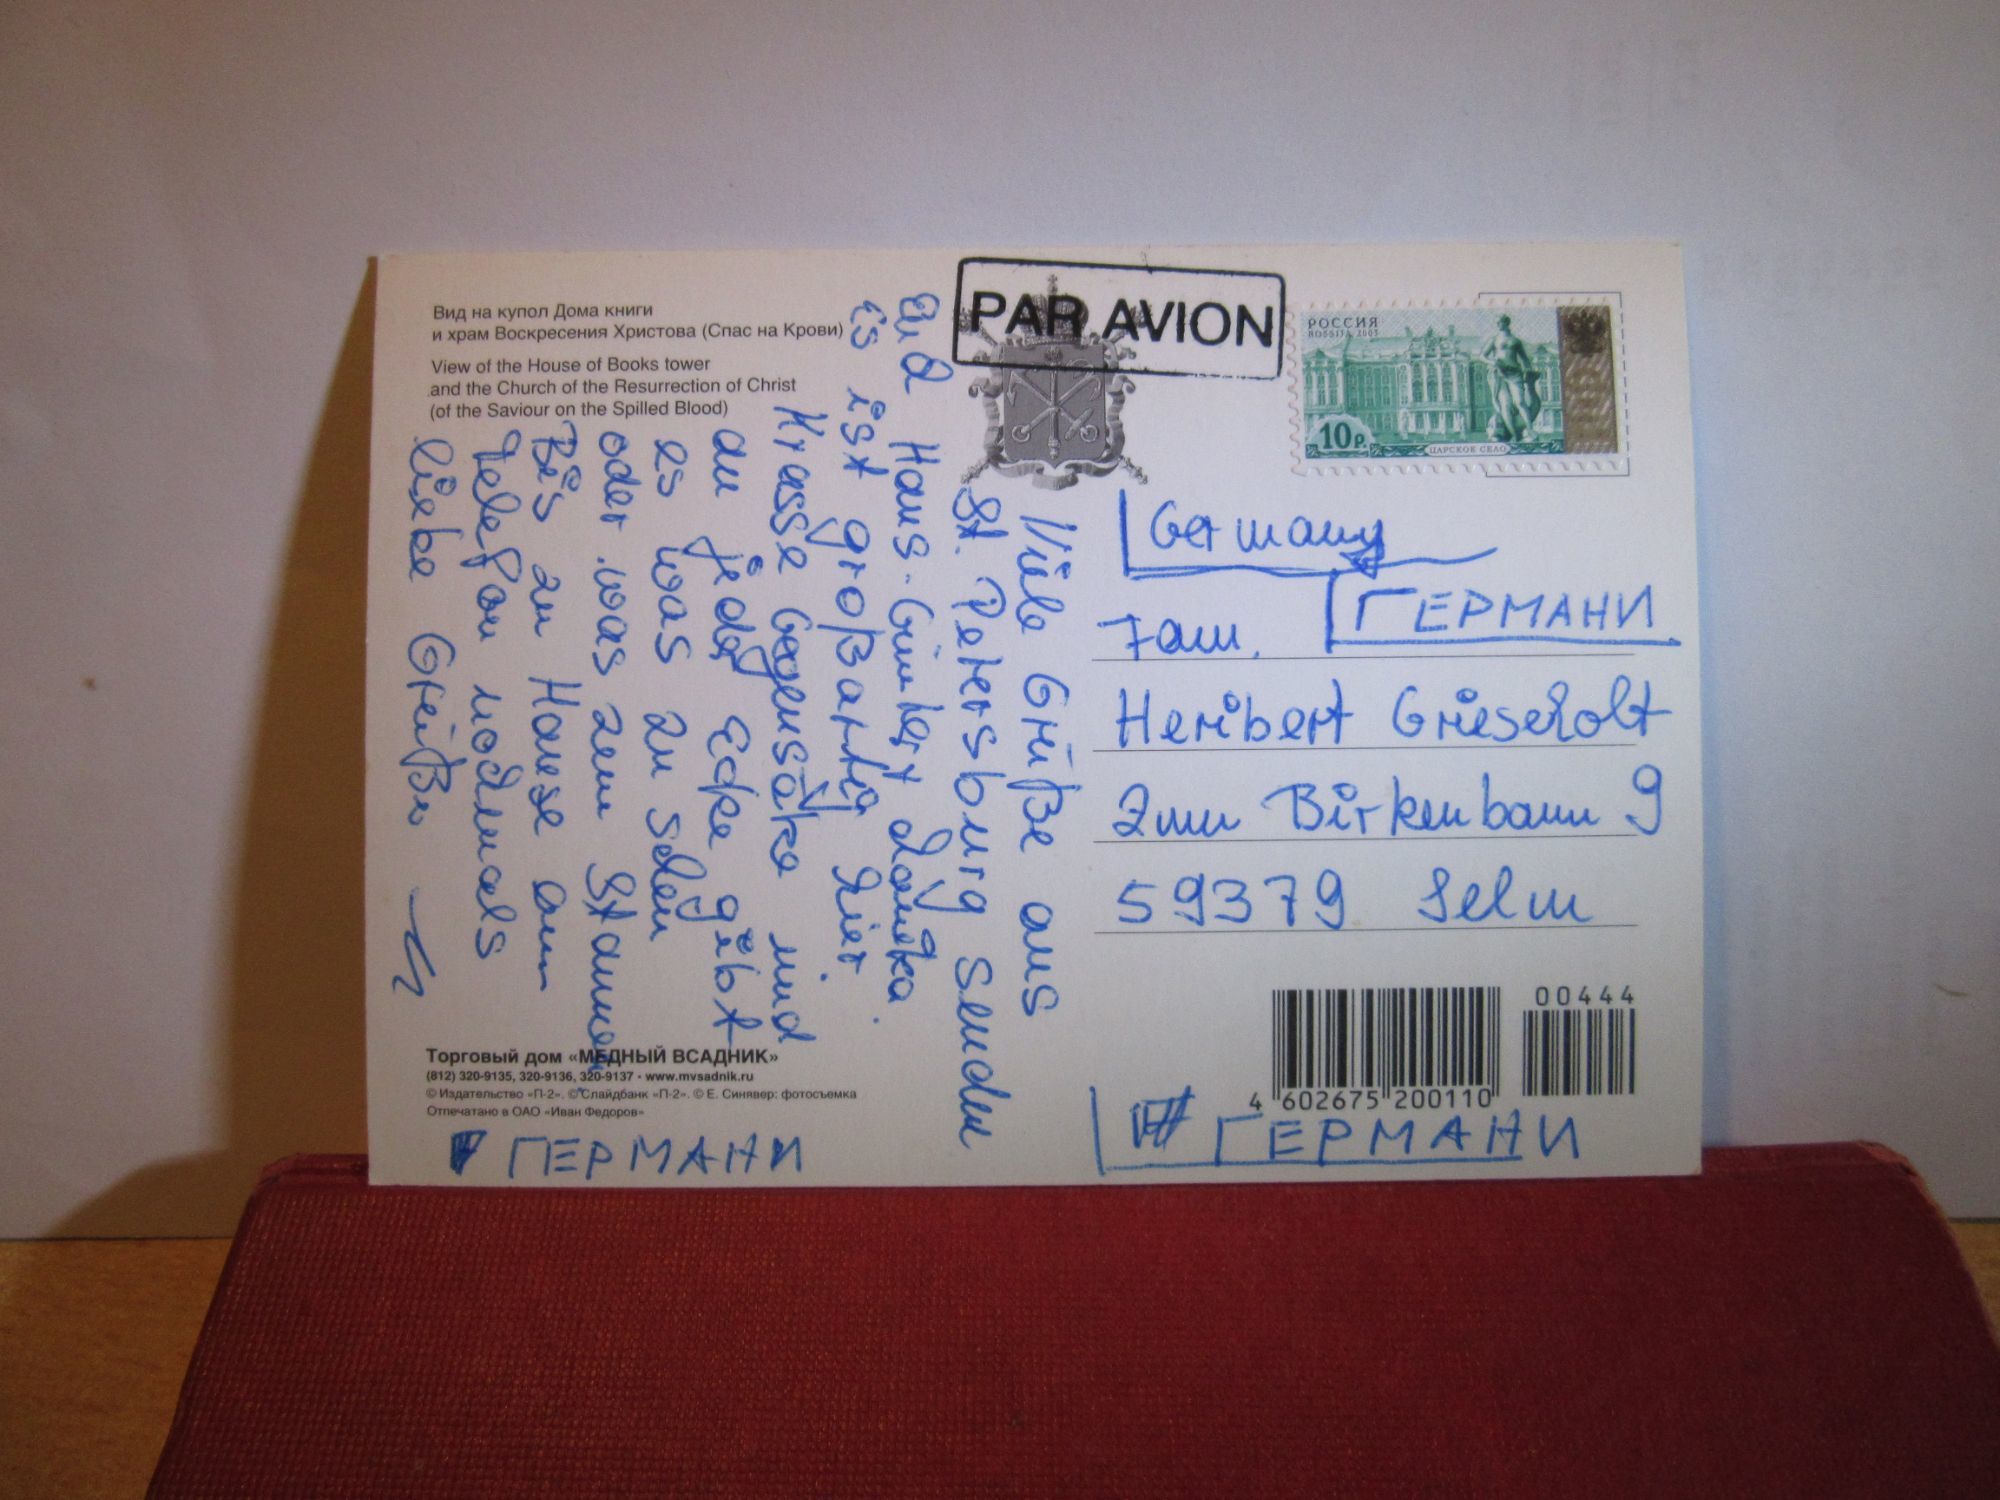 Вид на купол Дома книги
и храм Воскресения Христова (Спас на Крови)
View of the House of Books tower
and the Church of the Resurrection of Christ
(of the Saviour on the Spilled Blood)
PAR AVION
РОССИЯ
ROSSIJA 2003
10 Р.
ЦАРСКОЕ СЕЛО
Viele Grüße aus
St. Petersburg senden
Euch Hans-Günter
Es ist großartig hier.
Krasse Gegensätze und
an jeder Ecke gibt
es was zu sehen
oder was zum Staunen.
Bis zu Hause am
Telefon nochmals
liebe Grüße
Germany
ГЕРМАНИ
Fam.
Heribert Grieseholt
Zum Birkenbaum 9
59379 Selm
00444
4 602675 200110
Торговый дом «МЕДНЫЙ ВСАДНИК»
(812) 320-9135, 320-9136, 320-9137 - www.mvsadnik.ru
© Издательство «П-2». © Слайдбанк «П-2». © Е. Синявер: фотосъемка
Отпечатано в ОАО «Иван Федоров»
ГЕРМАНИ
ГЕРМАНИ